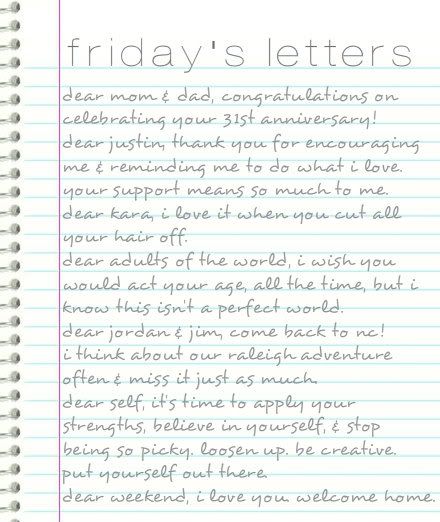 friday's letters
dear mom & dad, congratulations on
celebrating your 31st anniversary!
dear justin, thank you for encouraging
me & reminding me to do what i love.
your support means so much to me.
dear kara, i love it when you cut all
your hair off.
dear adults of the world, i wish you
would act your age, all the time, but i
know this isn't a perfect world.
dear jordan & jim, come back to nc!
i think about our raleigh adventure
often & miss it just as much.
dear self, it's time to apply your
strengths, believe in yourself, & stop
being so picky. loosen up. be creative.
put yourself out there.
dear weekend, i love you. welcome home.